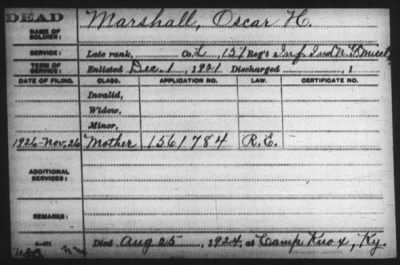 DEAD
NAME OF SOLDIER: Marshall, Oscar H.
SERVICE: Late rank, Co. L, 151 Reg't Inf. Ind. N. G.
TERM OF SERVICE: Enlisted Dec. 1, 1921 Discharged , 1
DATE OF FILING. CLASS. APPLICATION NO. LAW. CERTIFICATE NO.
Invalid,
Widow,
Minor,
1926-Nov. 26 Mother 1561784 R.E.
ADDITIONAL SERVICES:
REMARKS:
Died Aug 25, 1924, at Camp Knox, Ky.